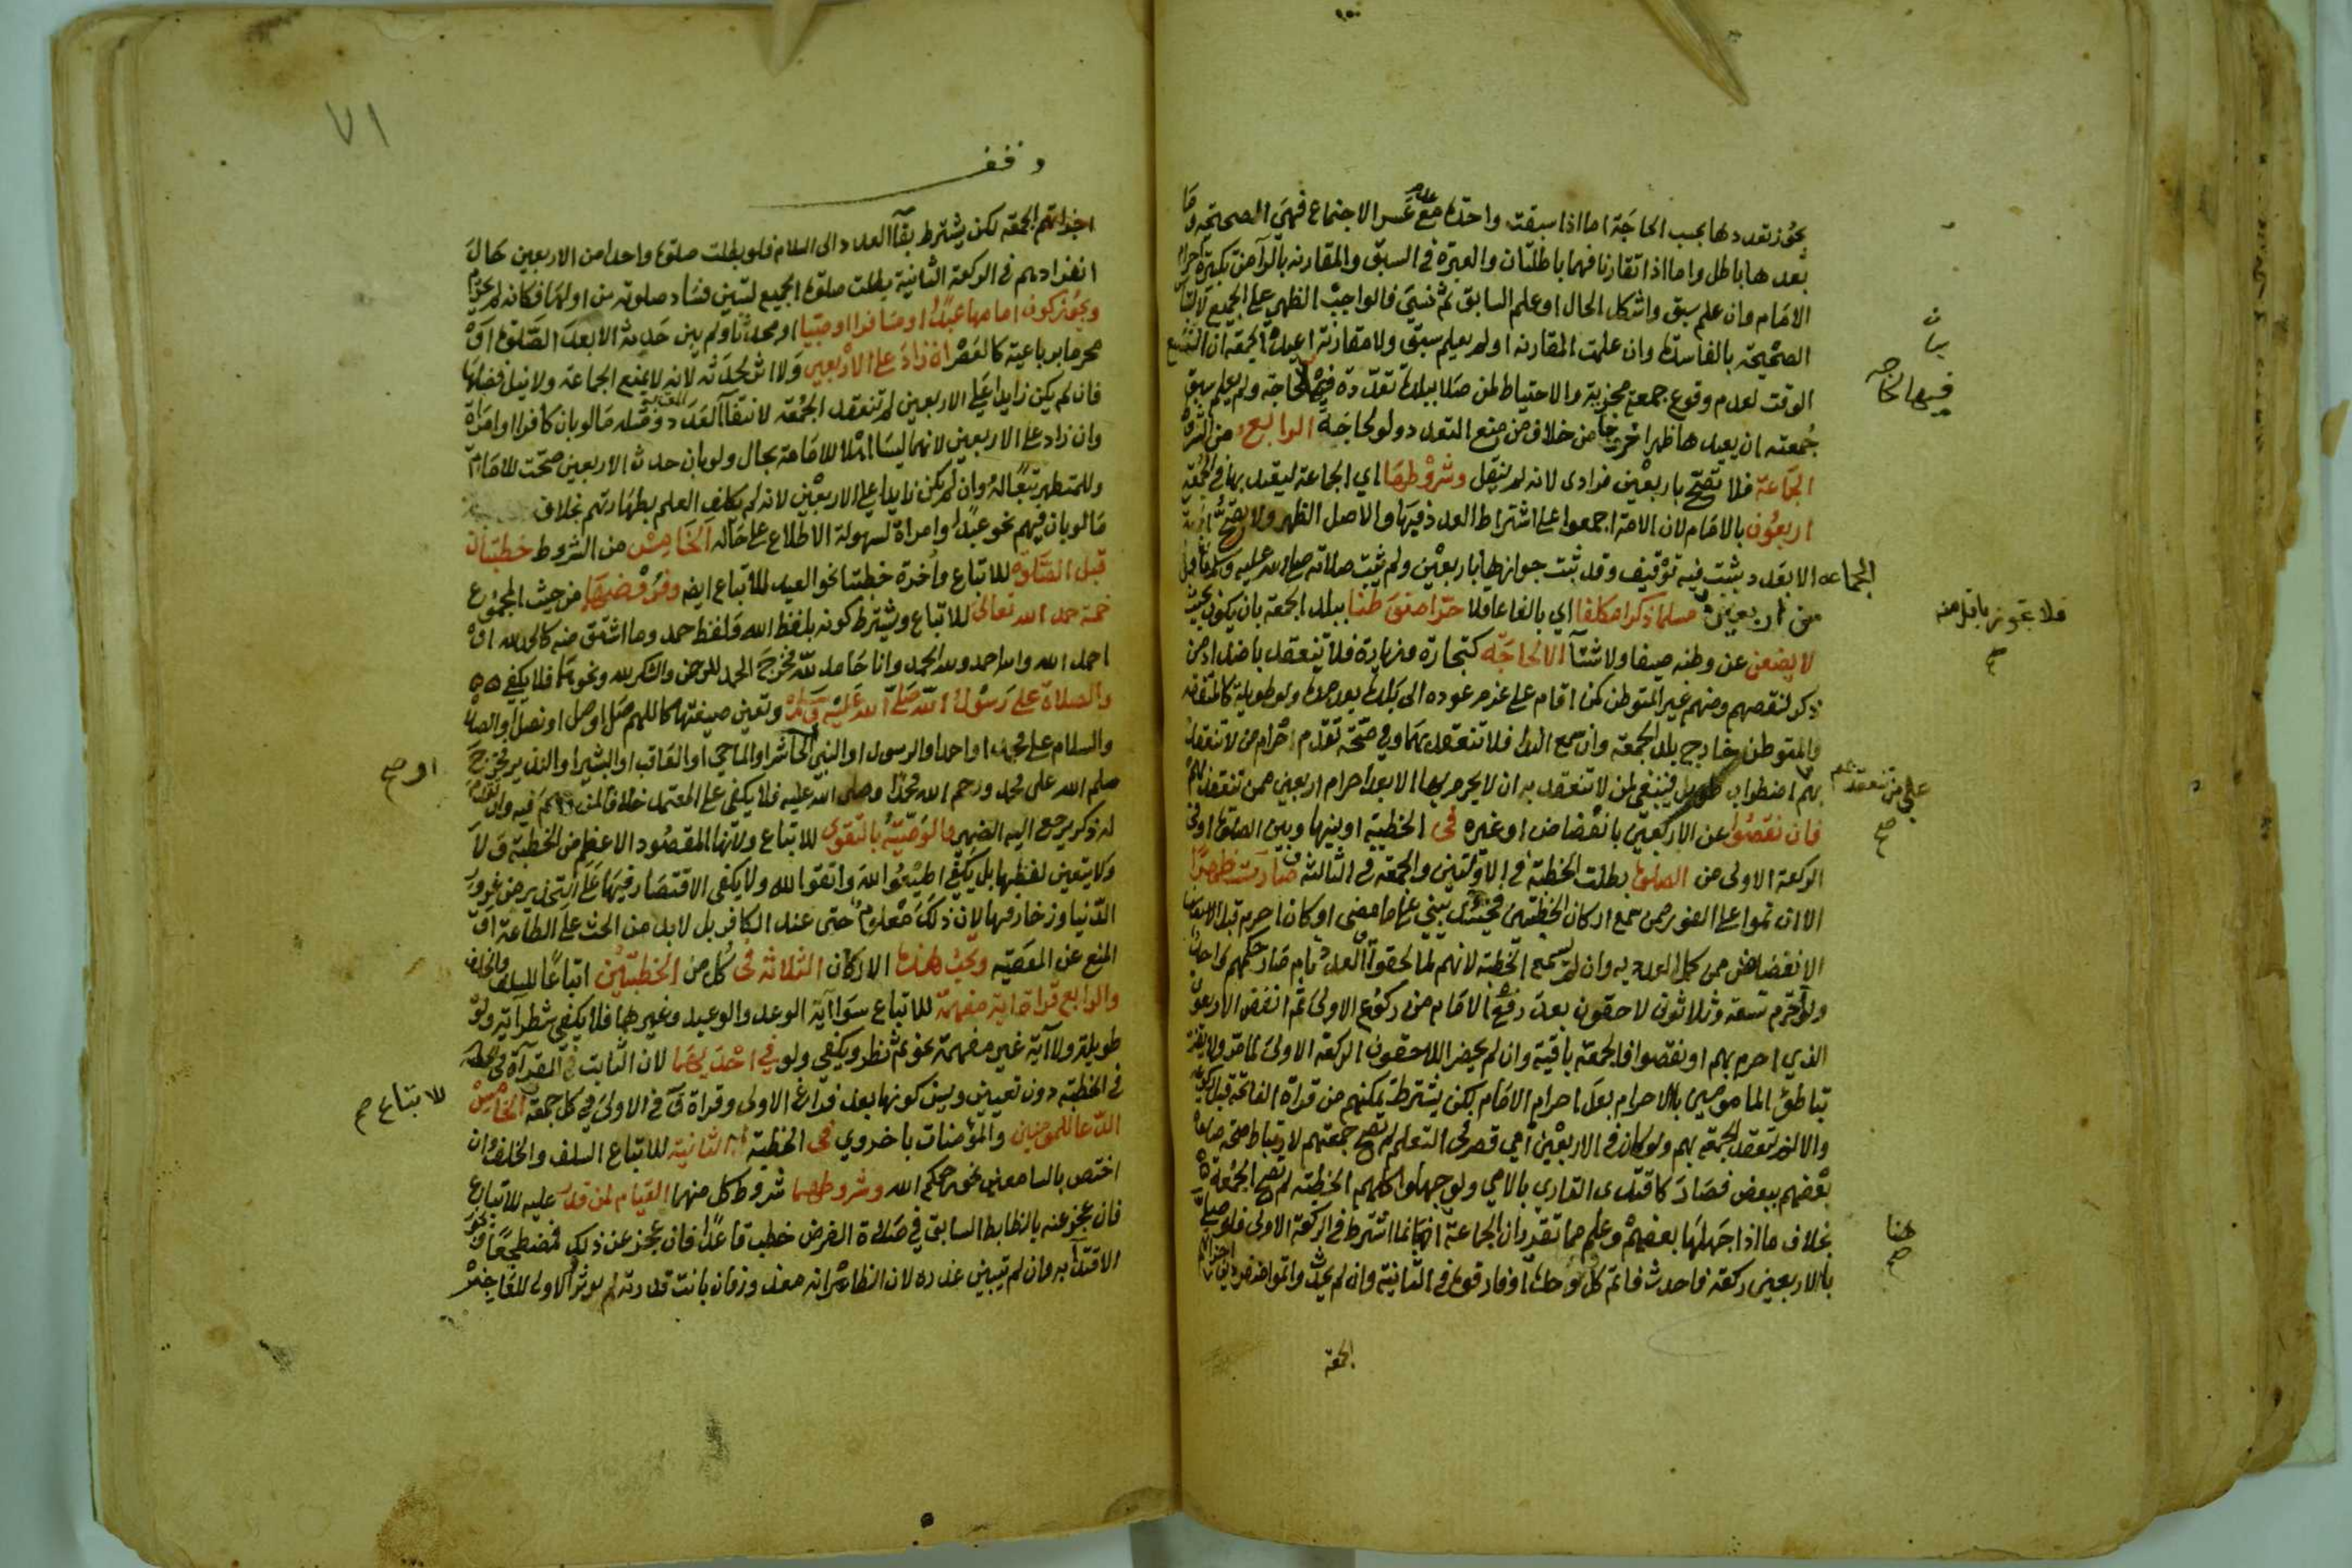 يجوز تعددها بحسب الحاجة اما اذا سبقت واحدة مع عدم عسر الاجتماع فهي الصحيحة وما
بعدها باطل واما اذا تقارنا فهما باطلتان والعبرة في السبق والمقارنه بالرآ من تكبيرة احرام
الامام وان علم سبق واشكل الحال او علم السابق ثم نسي فالواجب الظهر على الجميع لالتباس
الصحيحة بالفاسدة وان علمت المقارنه او لم يعلم سبق ولا مقارنة اعيدت الجمعة ان اتسع
الوقت لعدم وقوع جمعة مجزية والاحتياط لمن صلا ببلد تعددت فيه لحاجة ولم يعلم سبق
جمعته ان يعيدها ظهرا خروجا من خلاف من منع التعدد ولو لحاجة الرابع من الشروط
الجماعة فلا تصح باربعين فرادى لانه لم ينقل وشروطها اي الجماعة ليعتد بها في الجمعة
اربعون بالامام لان الامة اجمعوا على اشتراط العدد فيها والاصل الظهر ولا تصح
الجماعه الا بعدد يثبت فيه توقيف وقد ثبت جوازها باربعين ولم يثبت صلاته صلى الله عليه وسلم باقل
من اربعين مسلما ذكرا مكلفا اي بالغا عاقلا حرا متوطنا ببلد الجمعة بان يكون بحيث
لا يضعن عن وطنه صيفا ولا شتآ الا لحاجة كتجارة وزيارة فلا تنعقد باضداد من
ذكر لنقصهم ومنهم غير المتوطن كمن اقام على عزم عوده الى بلده بعد مدة ولو طويلة كالمتفقه
والمتوطن خارج بلد الجمعة وان سمع الندا فلا تنعقد بهما وفي صحة تقدم احرام من لا تنعقد
بهم اضطراب طويل فينبغي لمن لا تنعقد به ان لا يحرم بها الا بعد احرام اربعين ممن تنعقد بهم
فان نقصوا عن الاربعين بانفضاض او غيره في الخطبة او بينها وبين الصلوة او في
الركعة الاولى من الصلوة بطلت الخطبة في الاولتين والجمعة في الثالثة و صارت ظهرا
الا ان تموا على الفور ممن سمع اركان الخطبتين فحينئذ يبني على ما مضى او كان احرم قبل
الانفضاض ممن كمل العدد به وان لم يسمع الخطبة لانهم لما لحقوا والعدد تام صار حكمهم واحدا
ولو احرم تسعة وثلاثون لاحقون بعد رفع الامام من ركوع الاولى ثم انفض الاربعون
الذي احرم بهم او نقصوا فالجمعة باقية وان لم يحضر اللاحقون الركعة الاولى لما مر ولا يضر
تباطؤ المامومين بالاحرام بعد احرام الامام لكن يشترط تمكنهم من قراة الفاتحة قبل ركوعه
والا لم تنعقد الجمعة بهم ولو كان في الاربعين امي قصر في التعلم لم تصح جمعتهم لارتباط صحة صلاة
بعضهم ببعض فصار كاقتدى القاري بالامي ولو جهلوا كلهم الخطبة لم تصح الجمعة
بخلاف ما اذا جهلها بعضهم وعلم مما تقرر ان الجماعة انما اشترط في الركعة الاولى فلو صلى
بالاربعين ركعة فاحدث فاتم كل وحده او فارقوه في الثانية وان لم يحدث واتموا منفردين
الجمعة
فيها لحاجه
بيان
فلا تجوز باقل منه
صح
على من تنعقد بهم
صح
هنا
صح
٧١
وقف
اجزاتهم الجمعة لكن يشترط بقآ العدد الى السلام فلو بطلت صلوة واحد من الاربعين حال
انفرادهم في الركعة الثانية بطلت صلوة الجميع لتبين فساد صلوته من اولها فكانه لم يحرم
ويجوز كون امامها عبدا او مسافرا او صبيا او محدثا ولم يبن حدثه الا بعد الصلوة او
محرما برباعية كالعصر ان زاد على الاربعين ولا اثر لحدثه لانه لا يمنع الجماعة ولا نيل فضلها
فان لم يكن زايدا على الاربعين لم تنعقد الجمعة لانتفآ العدد ومثله ما لو بان كافرا او امراة
وان زاد على الاربعين لانهما ليسا اهلا للامامة بحال ولو بان حدث الاربعين صحت للامام
وللمتطهر تبعا له وان لم يكن زايدا على الاربعين لانه لم يكلف العلم بطهارتهم بخلاف
ما لو بان فيهم نحو عبد او امراة لسهولة الاطلاع على حاله الخامس من الشروط خطبتان
قبل الصلاة للاتباع واخرة خطبتا نحو العيد للاتباع ايضا وفروضها من حيث المجموع
خمسة حمد الله تعالى للاتباع ويشترط كونه بلفظ الله ولفظ حمد وما اشتق منه كالحمد لله او
احمد الله والله احمد ولله الحمد وانا حامد لله فخرج الحمد للرحمن والشكر لله ونحوهما فلا يكفي
والصلاة على رسول الله صلى الله عليه وسلم وتعين صيغتها كاللهم صل او صلى او نصلي او الصلاة
والسلام على محمد او احمد او الرسول او النبي او الحاشر او الماحي او العاقب او البشير او النذير فخرج
سلم الله على محمد ورحم الله محمدا وصلى الله عليه فلا يكفي على المعتمد خلافا لمن وهم فيه وان تقدم
له ذكر يرجع اليه الضمير والوصية بالتقوى للاتباع ولانها المقصود الاعظم من الخطبة ولا
ولا يتعين لفظها بل يكفي اطيعوا الله واتقوا الله ولا يكفي الاقتصار فيها على التحذير من غرور
الدنيا وزخارفها لان ذلك معلوم حتى عند الكافر بل لا بد من الحث على الطاعة او
المنع عن المعصية وتجب هذه الاركان الثلاثة في كل من الخطبتين اتباعا للسلف والخلف
والرابع قراة اية مفهمة للاتباع سوا آية الوعد والوعيد وغيرهما فلا يكفي شطر آية ولو
طويلة ولا آية غير مفهمة نحو ثم نظر ويكفي ولو في احديهما لان الثابت في القرآة
في الخطبة دون تعيين ويسن كونها بعد فراغ الاولى وقراة ق في الاولى في كل جمعة الخامس
الدعا للمومنين والمؤمنات باخروي في الخطبة الثانية للاتباع السلف والخلف وان
اختص بالسامعين نحو رحمكم الله وشروطهما شروط كل منهما القيام لمن قدر عليه للاتباع
فان عجز عنه بالظابط السابق في صلاة الفرض خطب قاعدا فان عجز عن ذلك فمضطجعا ويجوز
الاقتدآ به وان لم تبين عذره لان الظاهر انه معذور فان بانت قدرته لم يوثر
او صح
للاتباع صح